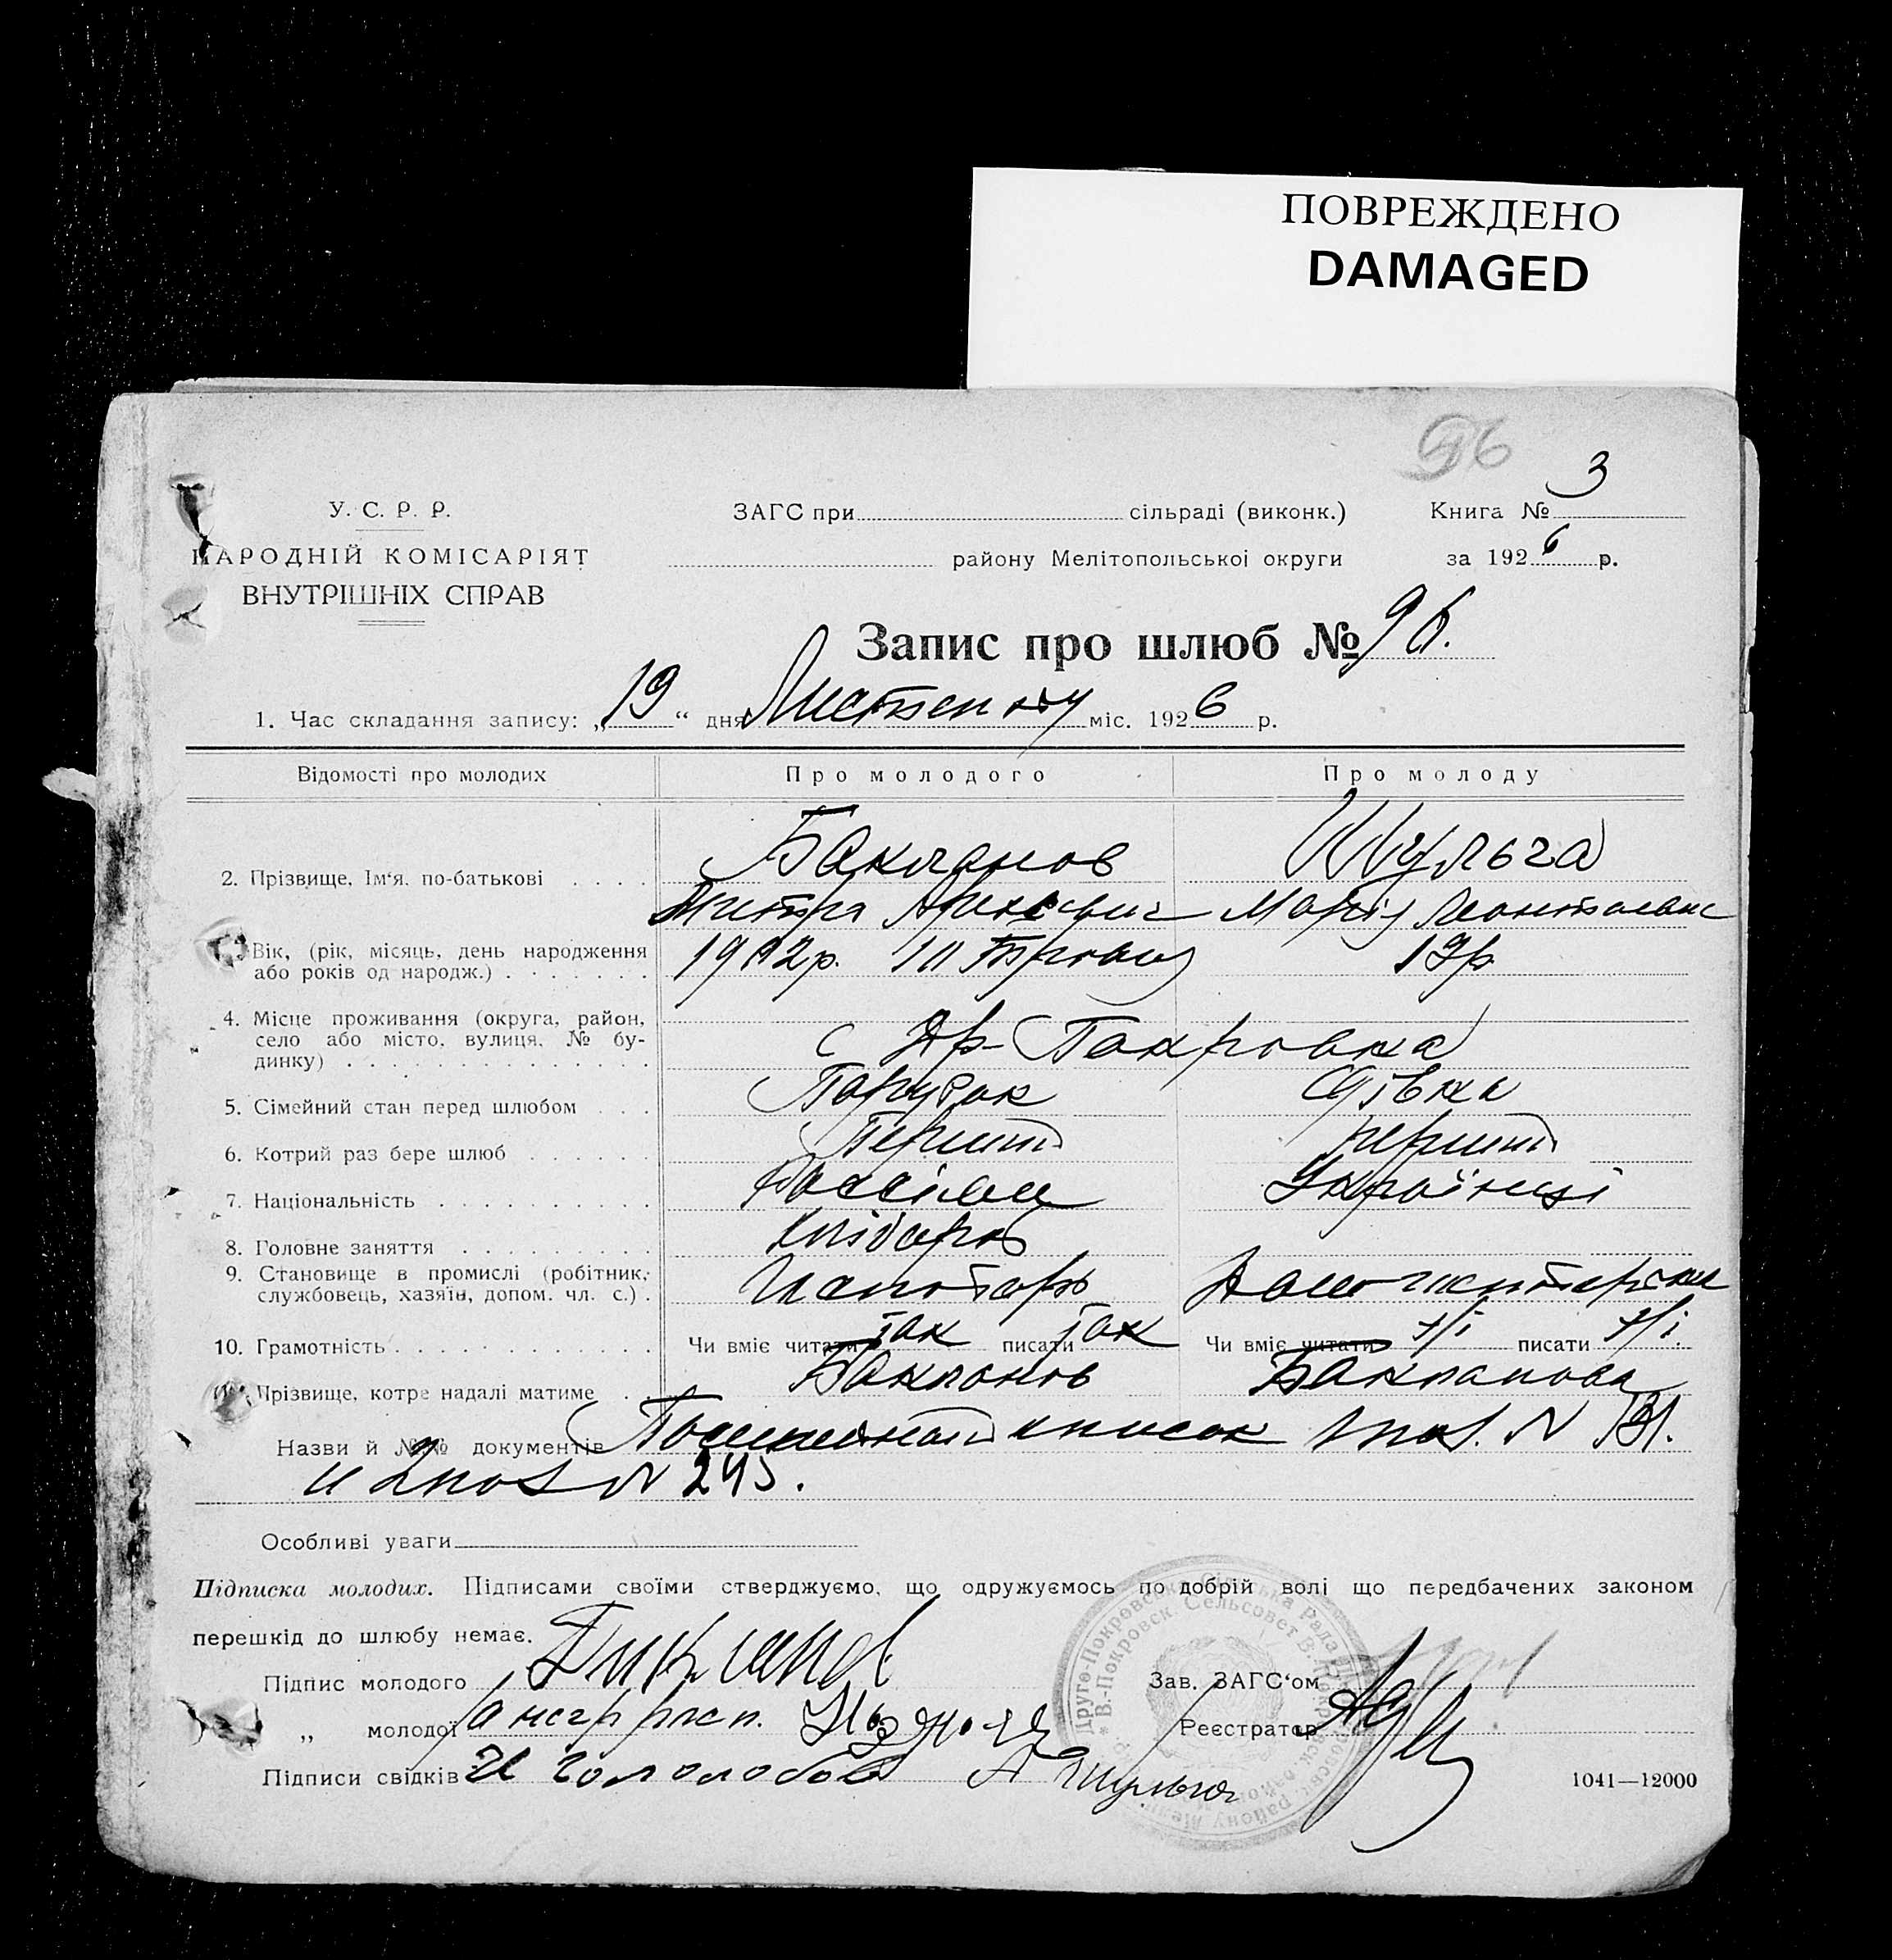 ПОВРЕЖДЕНО
DAMAGED
96
У. С. Р. Р.
НАРОДНІЙ КОМІСАРІЯТ
ВНУТРІШНІХ СПРАВ
ЗАГС при сільраді (виконк.)
району Мелітопольської округи
Книга № 3
за 1926 р.
Запис про шлюб № 96.
1. Час складання запису: „19“ дня Листопаду міс. 1926 р.
Відомості про молодих Про молодого Про молоду
2. Прізвище, Ім‘я, по-батькові . . . . Бакланов Шульга
Дмитро Марія
Вік, (рік, місяць, день народження
або років од народж.) . . . . . . . 19 р.
4. Місце проживання (округа, район,
село або місто, вулиця, № бу-
динку) . . . . . . . . . . . . . . с Др-Покровка
5. Сімейний стан перед шлюбом . . . Парубок Дівка
6. Котрий раз бере шлюб . . . . . . Перший перший
7. Національність . . . . . . . . . .
8. Головне заняття . . . . . . . . . Хлібороб
9. Становище в промислі (робітник,
службовець, хазяїн, допом. чл. с.) .
10. Грамотність . . . . . . . . . . . . Чи вміє читати так писати так Чи вміє читати н/і писати н/і.
Прізвище, котре надалі матиме . . Бакланов Бакланова
Назви й №№ документів список № 131.
и № 245.
Особливі уваги
Підписка молодих. Підписами своїми стверджуємо, що одружуємось по добрій волі що передбачених законом
перешкід до шлюбу немає.
Підпис молодого Бакланов
„ молодої
Підписи свідків И Гололобов А Шульга
Зав. ЗАГС‘ом
Реєстратор
1041—12000
Друго-Покровська Сільська Рада
В.-Покровск. Сельсовет